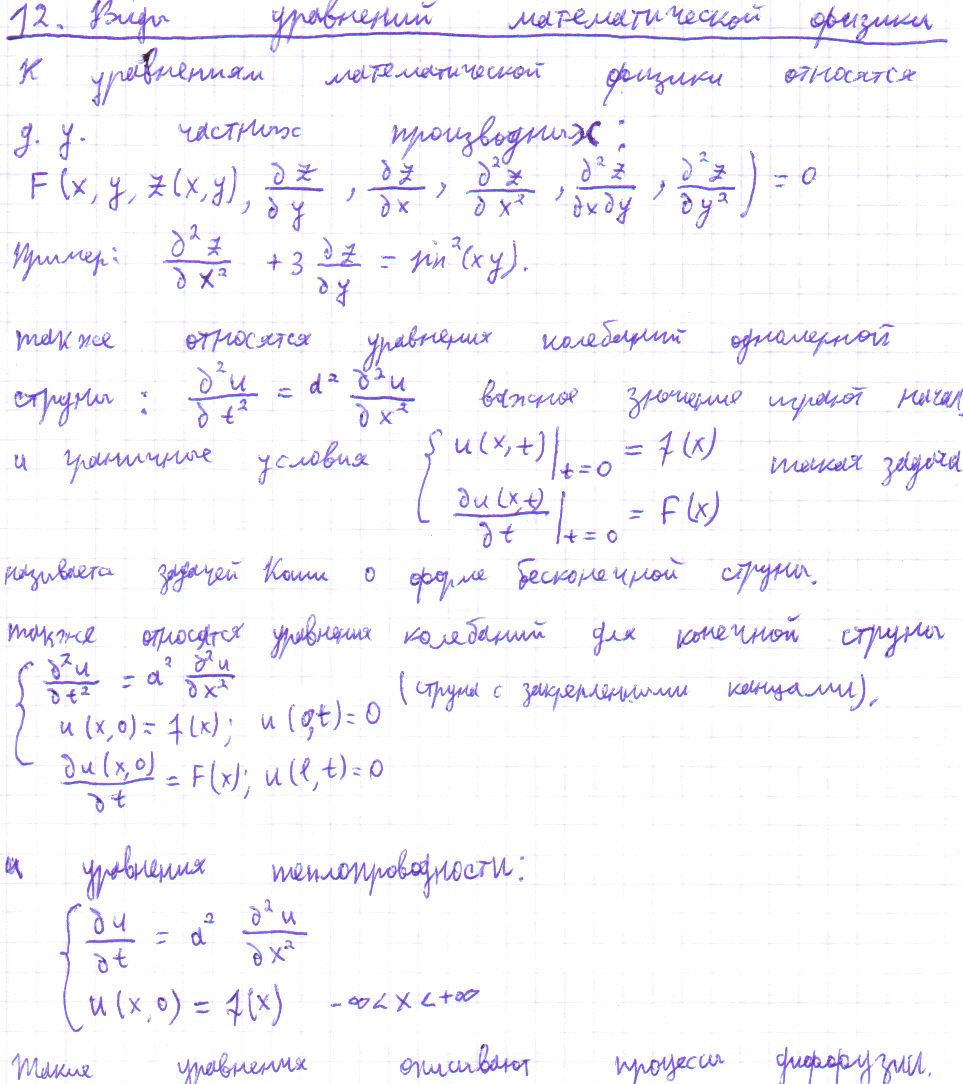 12. Виды уравнений математической физики
К уравнениям математической физики относятся
д. у. частных производных:
F(x, y, z(x,y), ∂z/∂y, ∂z/∂x, ∂²z/∂x², ∂²z/∂x∂y, ∂²z/∂y²) = 0
Пример: ∂²z/∂x² + 3 ∂z/∂y = sin²(xy).
также относятся уравнения колебаний одномерной
струны: ∂²u/∂t² = a² ∂²u/∂x² важное значение играют начал.
и граничные условия { u(x,t)|t=0 = f(x) такая задача
∂u(x,t)/∂t |t=0 = F(x)
называета задачей Коши о форме бесконечной струны.
также относятся уравнения колебаний для конечной струны
{ ∂²u/∂t² = a² ∂²u/∂x² (струна с закрепленными канцами).
u(x,0) = f(x); u(0,t) = 0
∂u(x,0)/∂t = F(x); u(l,t) = 0
и уравнения теплопроводности:
{ ∂u/∂t = a² ∂²u/∂x²
u(x,0) = f(x) -∞<x<+∞
Такие уравнения описывают процессы диффузии.